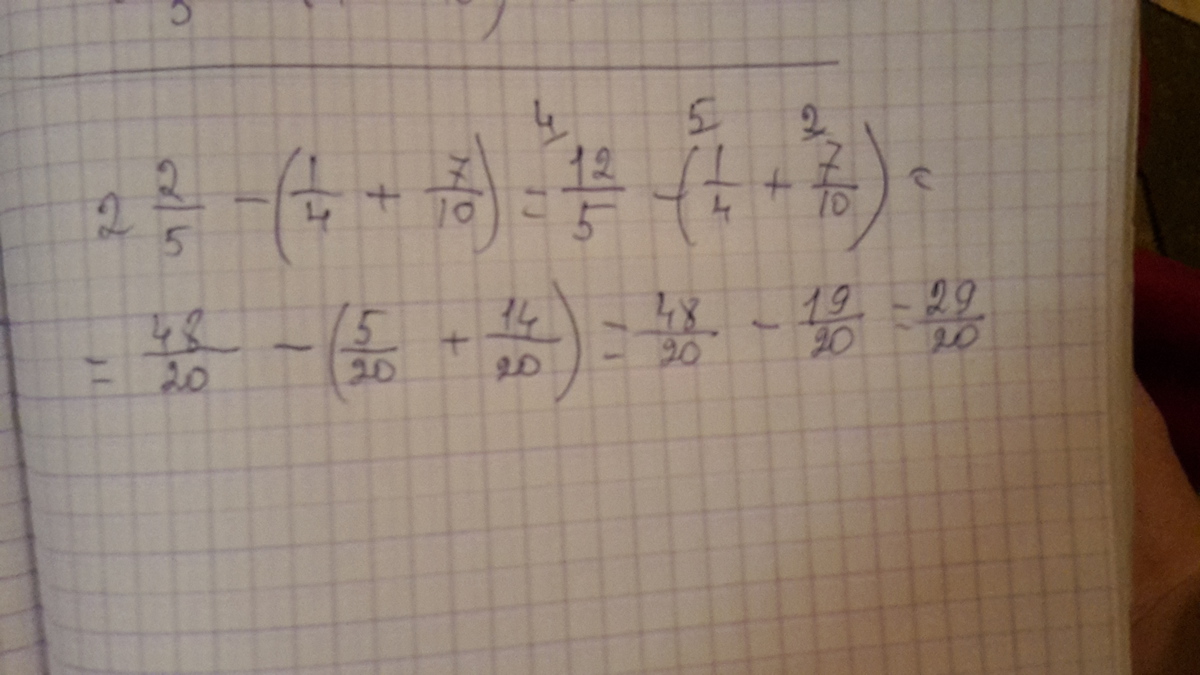 2 2/5 - (1/4 + 7/10) = 12/5 - (1/4 + 7/10) =
4 5 2
= 48/20 - (5/20 + 14/20) = 48/20 - 19/20 = 29/20